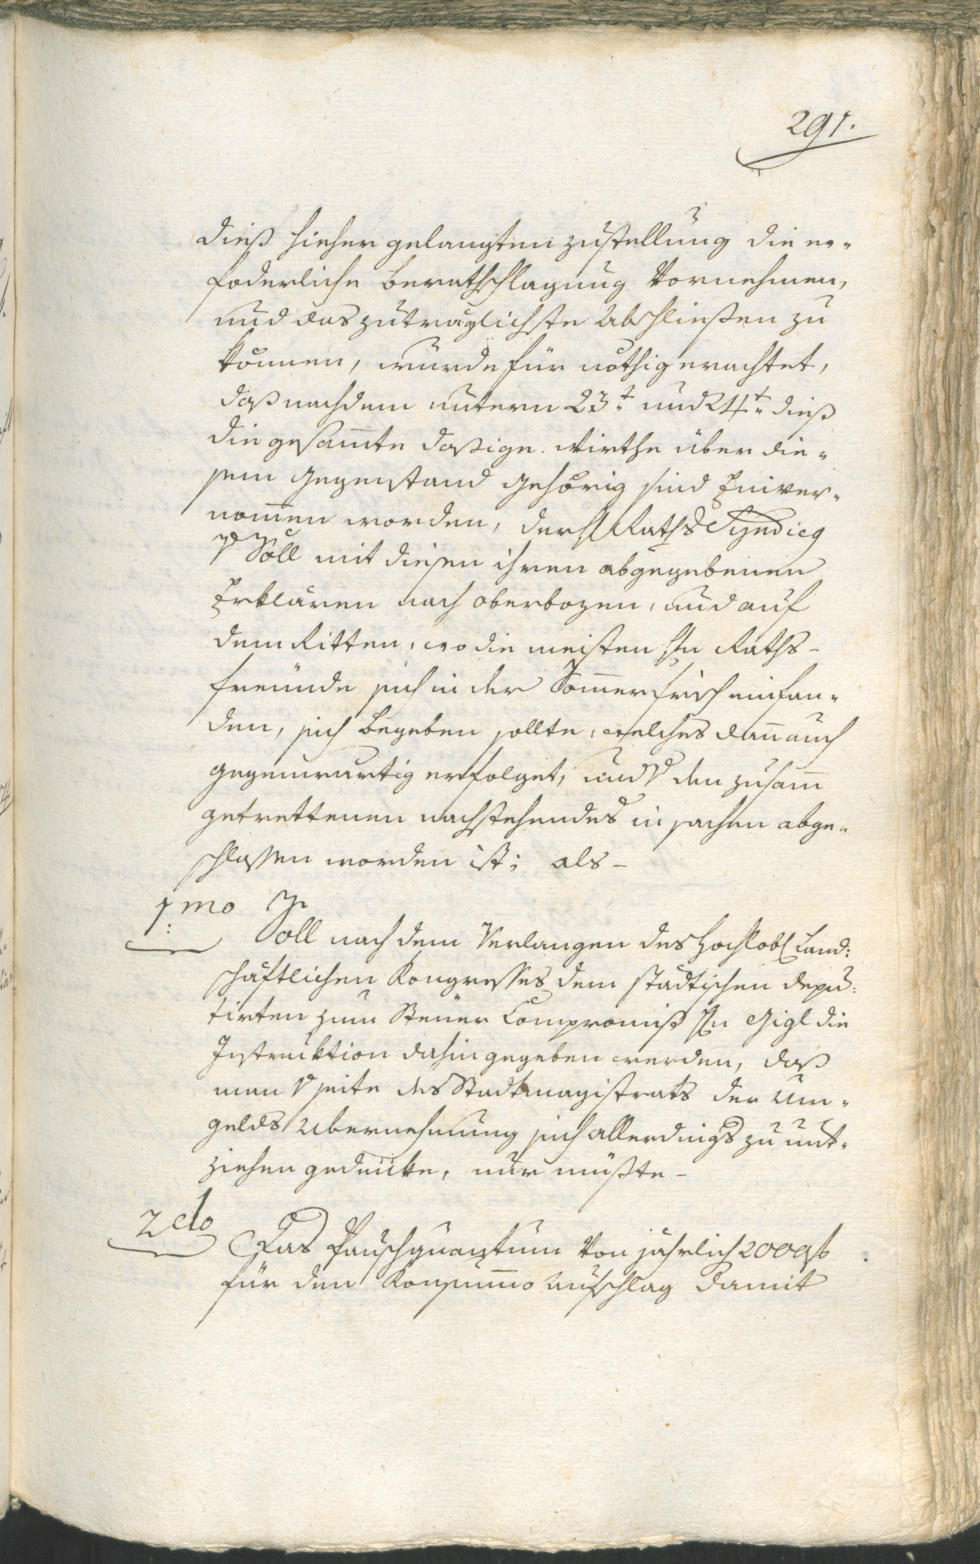 291.
dieß hieher gelangten zustellung die er-
foderliche Berathschlagung Vornehmen,
und das zuträglichste Abschließen zu
können, wurde für nöthig erachtet,
daß nachdem untern 23t: und 24t: dieß
die gesam̄te dasige Wirthe über die-
sem Gegenstand gehörig sind Einver-
nom̄en worden, der H Raths Syndicq
v Söll mit diesen ihren abgegebenen
Erklären nach oberbozen, und auf
dem Ritten, wo die meisten Hn Raths-
freunde sich in der Som̄erfrisch einfan-
den, sich begeben sollte, welches dan̄ auch
gegenwärtig erfolget, und v den zusam̄
getrettenen nachstehendes in sachen abge-
schlossen worden ist; als -
1mo: Soll nach dem Verlangen des Hochlobl Land:
schäftlichen Kongresses dem städtischen depu:
tirten zum Steuer Compromiß Hn Gigl die
Instruktion dahin gegeben werden, daß
man v seite des Stadtmagistrats der Um-
gelds Ubernehmung sich allerdings zu unt-
ziehen gedenke, nur müßte -
2do Das Pauschquantum Von jährlich 200 f
für den Konsum̄o Aufschlag damit